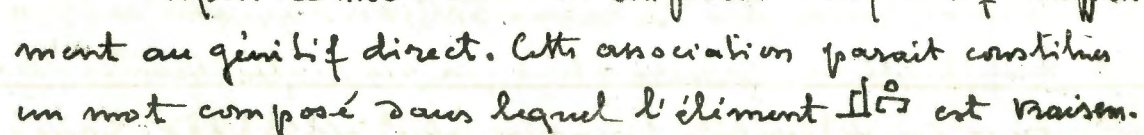 ment au génitif direct. Cette association parait constituer
un mot composé dans lequel l'élément est vraisem-